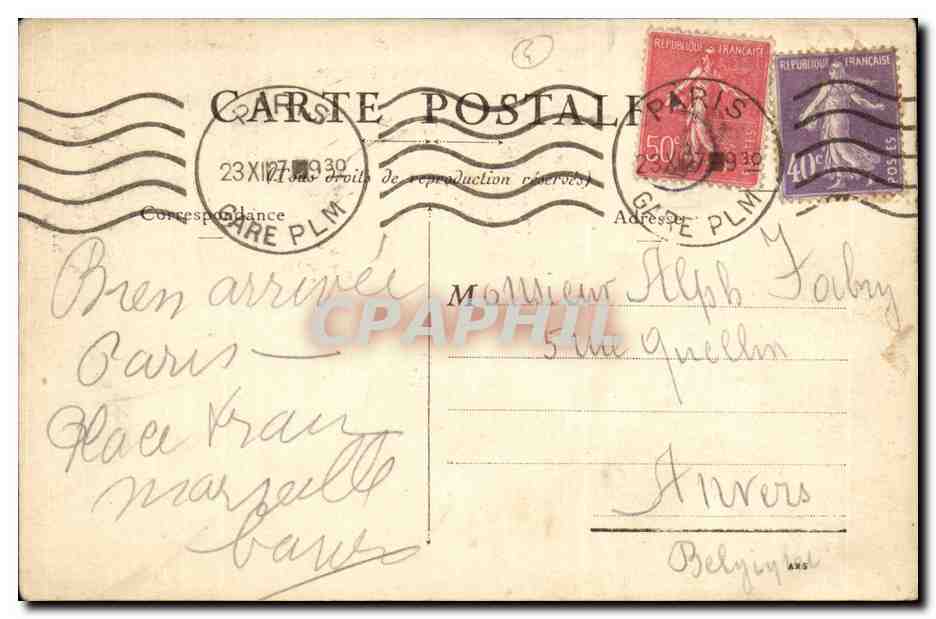 CARTE POSTALE
(Tous droits de reproduction réservés)
Correspondance
Adresse
PARIS
23 XII 27 9 30
GARE PLM
PARIS
23 XII 27 9 30
GARE PLM
REPUBLIQUE FRANÇAISE
50c
POSTES
REPUBLIQUE FRANÇAISE
40c
POSTES
Bien arrivée
Paris —
Place train
marseille
Monsieur Alph Fabry
5 rue Quellin
Anvers
Belgique
ARS
CPAPHIL